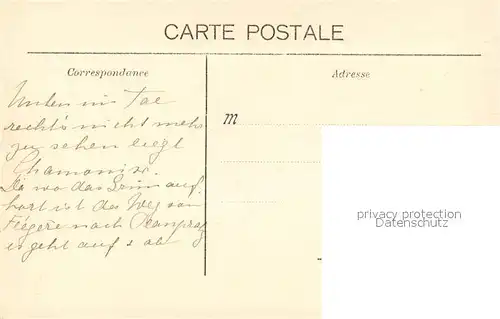 CARTE POSTALE
Correspondance
Adresse
Unten im Tal
rechts nicht mehr
zu sehen liegt
Chamonix.
Da wo das Grün auf
hört ist der Weg von
Flégère nach Planpraz
es geht auf & ab
M
privacy protection
oldthing Datenschutz